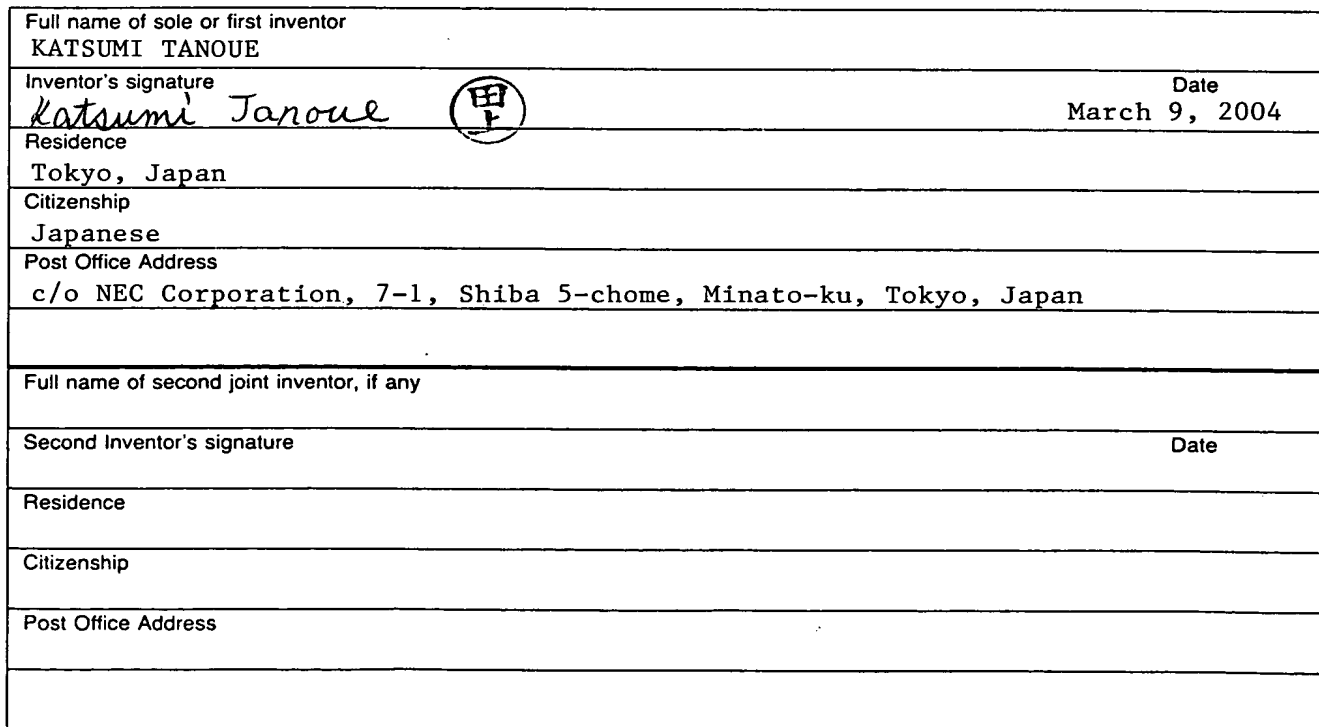 Full name of sole or first inventor
KATSUMI TANOUE
Inventor's signature
Date
Katsumi Tanoue
田上
March 9, 2004
Residence
Tokyo, Japan
Citizenship
Japanese
Post Office Address
c/o NEC Corporation, 7-1, Shiba 5-chome, Minato-ku, Tokyo, Japan
Full name of second joint inventor, if any
Second Inventor's signature
Date
Residence
Citizenship
Post Office Address